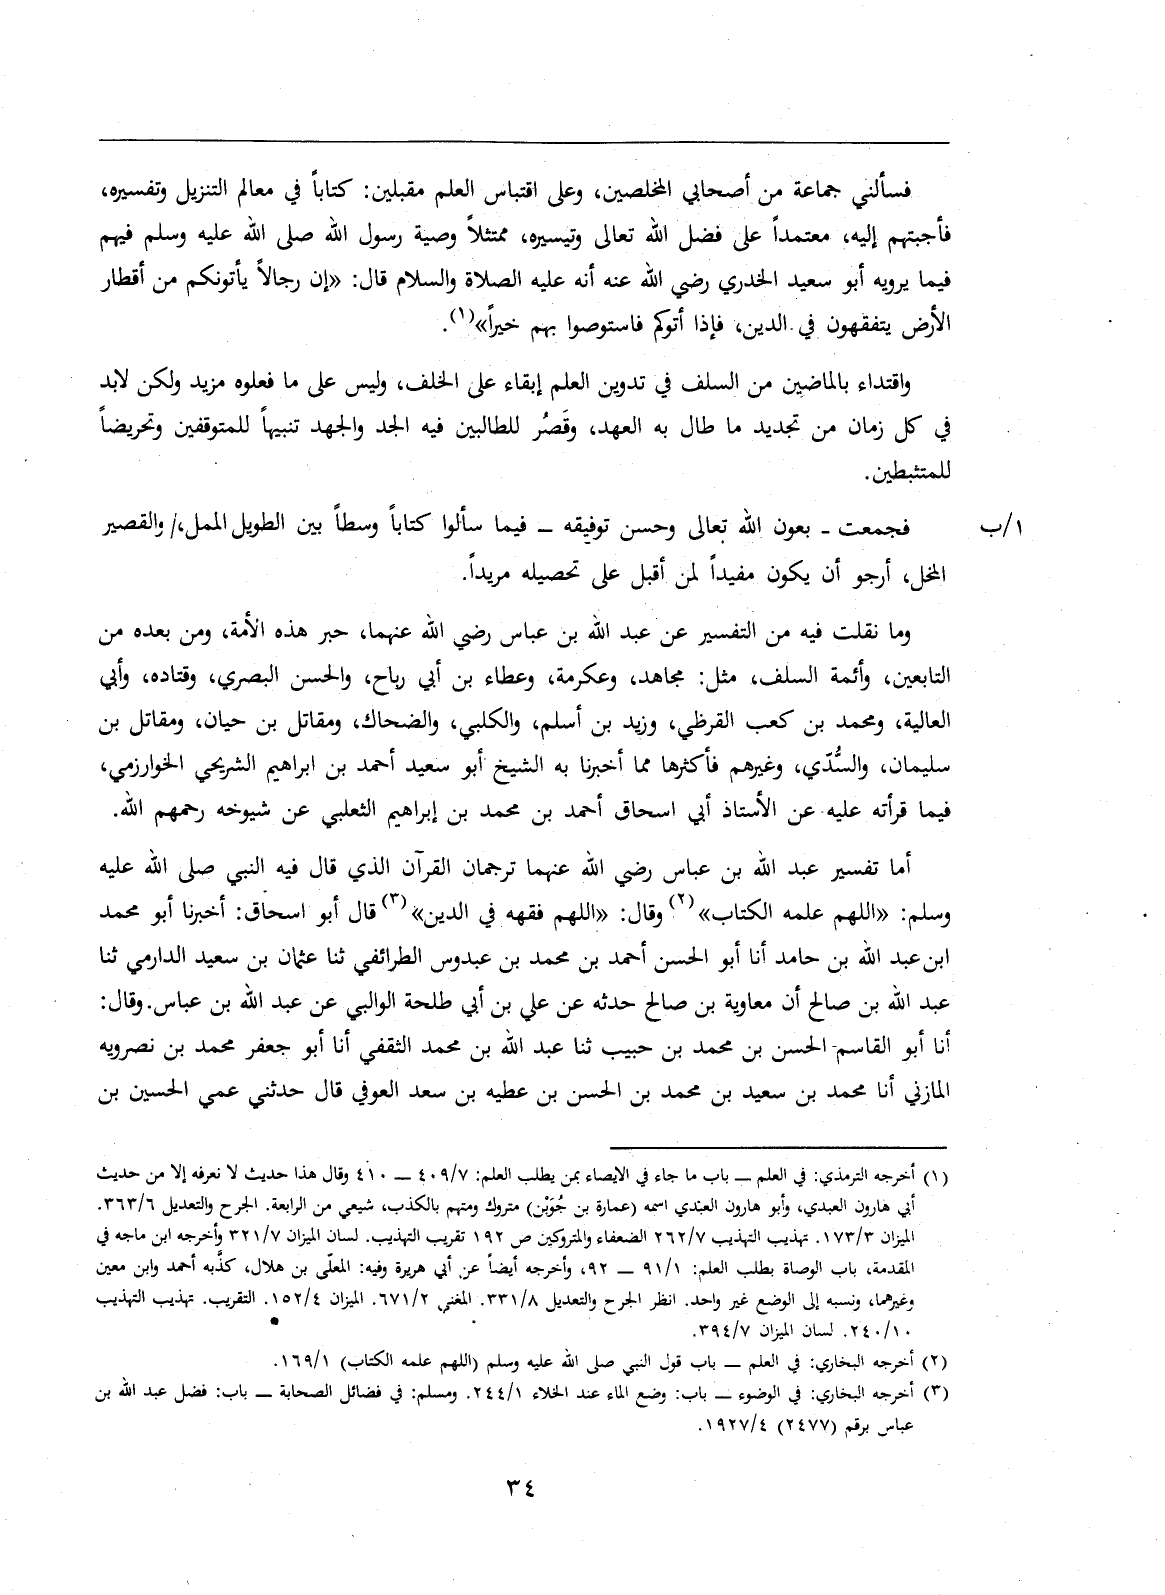 فسألني جماعة من أصحابي المخلصين، وعلى اقتباس العلم مقبلين: كتاباً في معالم التنزيل وتفسيره،
فأجبتهم إليه، معتمداً على فضل الله تعالى وتيسيره، ممتثلاً وصية رسول الله صلى الله عليه وسلم فيهم
فيما يرويه أبو سعيد الخدري رضي الله عنه أنه عليه الصلاة والسلام قال: «إن رجالاً يأتونكم من أقطار
الأرض يتفقهون في الدين، فإذا أتوكم فاستوصوا بهم خيراً»(١).
واقتداء بالماضين من السلف في تدوين العلم إبقاء على الخلف، وليس على ما فعلوه مزيد ولكن لابد
في كل زمان من تجديد ما طال به العهد، وقَصُر للطالبين فيه الجد والجهد تنبيهاً للمتوقفين وتحريضاً
للمتثبطين.
١/ب فجمعت ـ بعون الله تعالى وحسن توفيقه ـ فيما سألوا كتاباً وسطاً بين الطويل الممل،/ والقصير
المخل، أرجو أن يكون مفيداً لمن أقبل على تحصيله مريداً.
وما نقلت فيه من التفسير عن عبد الله بن عباس رضي الله عنهما، حبر هذه الأمة، ومن بعده من
التابعين، وأئمة السلف، مثل: مجاهد، وعكرمة، وعطاء بن أبي رباح، والحسن البصري، وقتاده، وأبي
العالية، ومحمد بن كعب القرظي، وزيد بن أسلم، والكلبي، والضحاك، ومقاتل بن حيان، ومقاتل بن
سليمان، والسُّدّي، وغيرهم فأكثرها مما أخبرنا به الشيخ أبو سعيد أحمد بن ابراهيم الشريحي الخوارزمي،
فيما قرأته عليه عن الأستاذ أبي اسحاق أحمد بن محمد بن إبراهيم الثعلبي عن شيوخه رحمهم الله.
أما تفسير عبد الله بن عباس رضي الله عنهما ترجمان القرآن الذي قال فيه النبي صلى الله عليه
وسلم: «اللهم علمه الكتاب»(٢) وقال: «اللهم فقهه في الدين»(٣) قال أبو اسحاق: أخبرنا أبو محمد
ابن عبد الله بن حامد أنا أبو الحسن أحمد بن محمد بن عبدوس الطرائفي ثنا عثمان بن سعيد الدارمي ثنا
عبد الله بن صالح أن معاوية بن صالح حدثه عن علي بن أبي طلحة الوالبي عن عبد الله بن عباس. وقال:
أنا أبو القاسم الحسن بن محمد بن حبيب ثنا عبد الله بن محمد الثقفي أنا أبو جعفر محمد بن نصرويه
المازني أنا محمد بن سعيد بن محمد بن الحسن بن عطيه بن سعد العوفي قال حدثني عمي الحسين بن
(١) أخرجه الترمذي: في العلم ـ باب ما جاء في الايصاء بمن يطلب العلم: ٤٠٩/٧ ـ ٤١٠ وقال هذا حديث لا نعرفه إلا من حديث
أبي هارون العبدي، وأبو هارون العبدي اسمه (عمارة بن جُوَيْن) متروك ومتهم بالكذب، شيعي من الرابعة. الجرح والتعديل ٣٦٣/٦.
الميزان ١٧٣/٣. تهذيب التهذيب ٢٦٢/٧ الضعفاء والمتروكين ص ١٩٢ تقريب التهذيب. لسان الميزان ٣٢١/٧ وأخرجه ابن ماجه في
المقدمة، باب الوصاة بطلب العلم: ٩١/١ ـ ٩٢، وأخرجه أيضاً عن أبي هريرة وفيه: المعلّى بن هلال، كذَّبه أحمد وابن معين
وغيرهما، ونسبه إلى الوضع غير واحد. انظر الجرح والتعديل ٣٣١/٨. المغني ٦٧١/٢. الميزان ١٥٢/٤. التقريب. تهذيب التهذيب
٢٤٠/١٠. لسان الميزان ٣٩٤/٧.
(٢) أخرجه البخاري: في العلم ـ باب قول النبي صلى الله عليه وسلم (اللهم علمه الكتاب) ١٦٩/١.
(٣) أخرجه البخاري: في الوضوء ـ باب: وضع الماء عند الخلاء ٢٤٤/١. ومسلم: في فضائل الصحابة ـ باب: فضل عبد الله بن
عباس برقم (٢٤٧٧) ١٩٢٧/٤.
٣٤